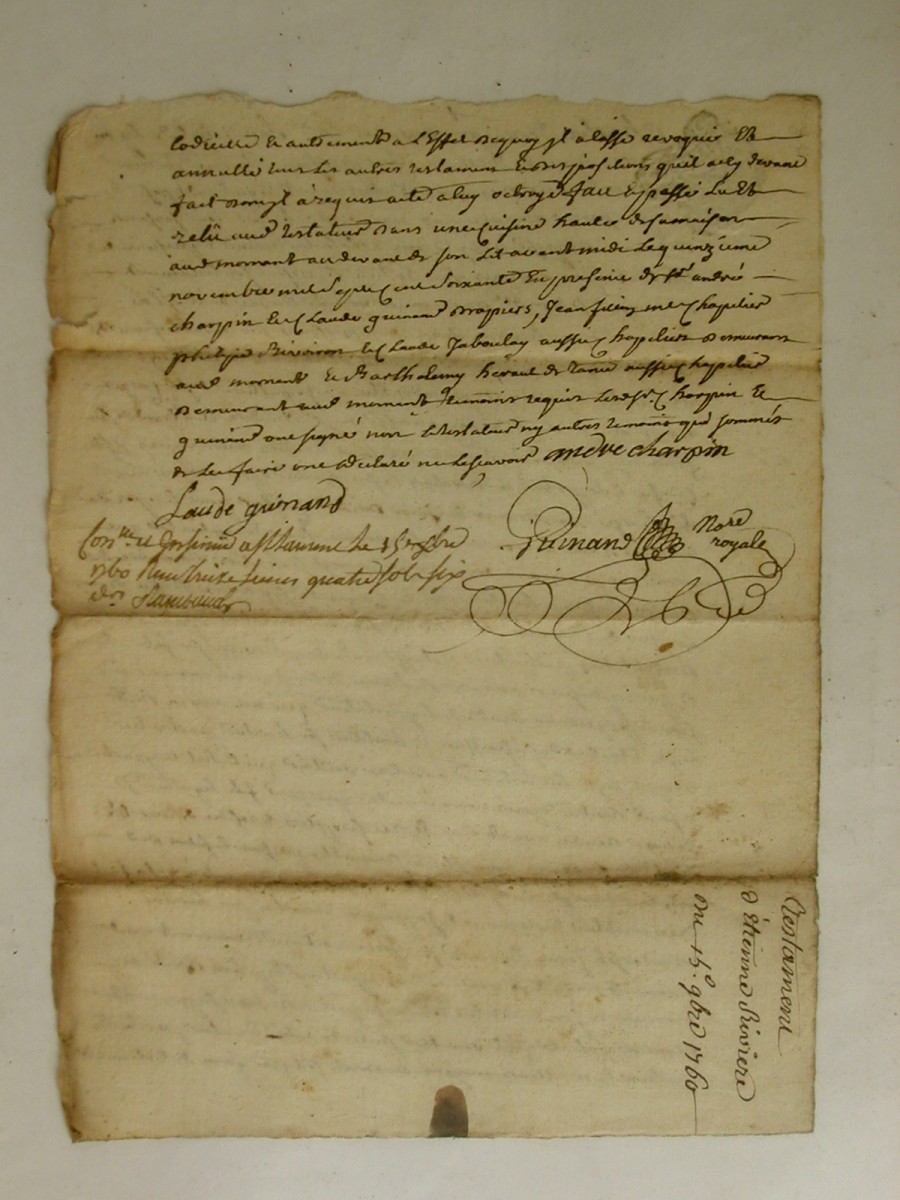 codicille et autrement a l'effet dequoy jl a casse revoqué et
annullé tous les autres testament et dispositions qu'il a cy devant
fait dont jl à requis acte a luy octroyé fait et passé lu et
relü aud testateur dans une cuisine haute de sa maison
aud mornant au devant de son lit avant midi le quinzieme
novembre mil sept cent soixante en presence de sr. andré
charpin et Claude guinand drapiers, Jean chapelier
philipe et Claude Jaboulay aussy chapelier demeurant
aud mornant et Barthelemy de aussy chapelier
demeurant aud mornant temoins requis lesd srs. charpin et
guinand ont signé non le testateur ny autres temoins qui sommés
de le faire ont declaré ne le scavoir andre charpin
Laude guinand
Guinand Nore
royale
Con.lle et a st Laurent le 15 9bre
1760 Reçu treize livres quatre sols six
drs
Testament
d'Étienne Riviere
du 15.e 9bre 1760